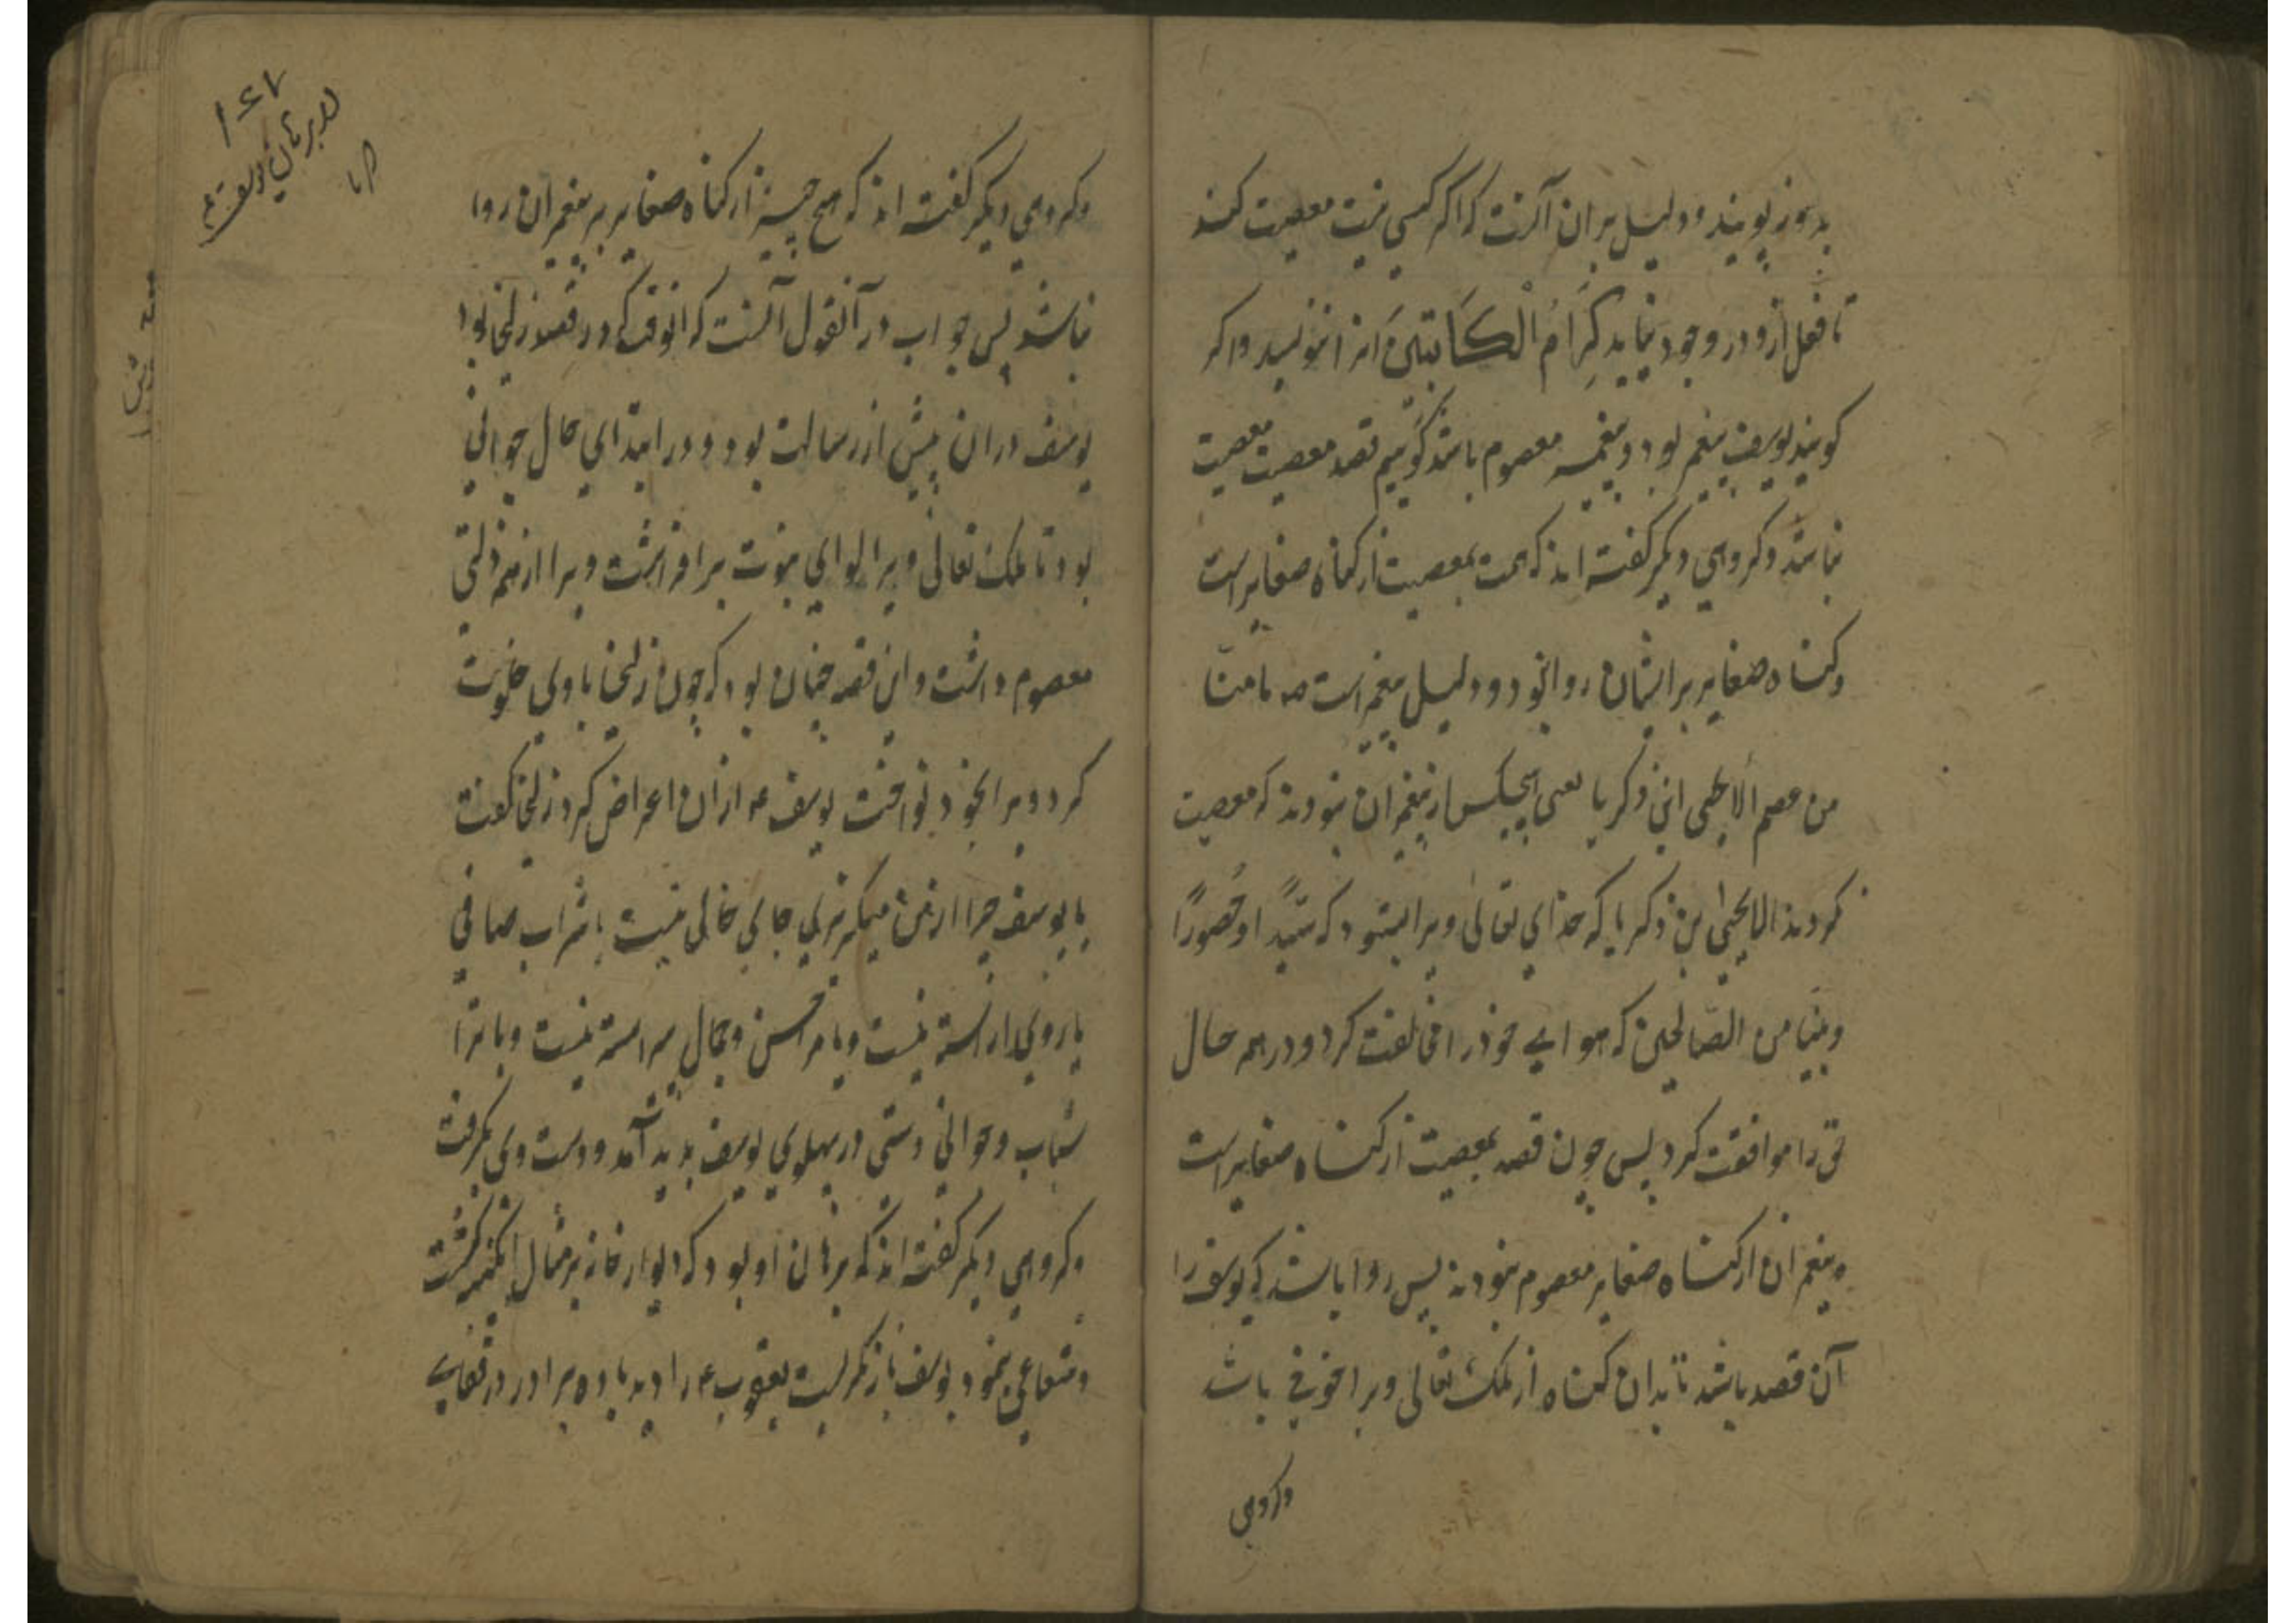 بدو نپویند و دلیل بران آنست که اگر کسی نیت معصیت کند
تا فعل ازو در وجود نیاید کِرَامُ الْکَاتِبینَ انرا ننویسد واکر
کویند یوسف پیغمبر بود و پیغمبر معصوم باشد کوییم قصد معصیت معصیت
نباشد وکروهی دیکر کفته اند که همت بمعصیت از کناه صغایر است
وکناه صغایر بر ایشان روا بود و دلیل پیغمبر است صه ما منّا
من عصم الا یحیی ابن ذکریا یعنی هیچکس از پیغمبران نبودند که معصیت
کردند الا یحیٰی بن ذکریا که خدای تعالیٰ ویرا بستود که سَیّدًا وحَصُورًا
ونبیًا من الصّالحین که هوای خود را مخالفت کرد و در همه حال
حق را موافقت کرد پس چون قصد بمعصیت از کناه صغایر است
وپیغمبران از کناه صغایر معصوم نبودند پس روا باشد که یوسف را
آن قصد باشد تا بدان کناه از ملک تعالی ویرا خوفی باشد
وکروهی
۱۴۷
برهان یوسف
وکروهی دیکر کفته اند که هیچ چیز از کناه صغایر بر پیغمبران روا
نباشد پس جواب در آنقول آنست که انوقت که در قصه زلیخا بود
یوسف دران پیش از رسالت بود و در ابتدای حال جوانی
بود تا ملک تعالی ویرا لوای نبوت برافراشت ویرا از همه زلتی
معصوم داشت و این قصه چنان بود که چون زلیخا با وی خلوت
کرد و ویرا بخود بنواخت یوسف ع از ان اعراض کرد زلیخا کفت
یا یوسف چرا از من میکریزی جای خالی نیست یا شراب صافی
یا روی اراسته نیست ویا مرا حسن وجمال پیراسته نیست ویا ترا
شباب وجوانی دستی در پهلوی یوسف پدید آمد و دست وی بکرفت
وکروهی دیکر کفته اند که برهان او بود که دیوار خانه بر مثال ابکینه کشت
وشعاعی بنمود یوسف بازنکریست یعقوب ع را دید با ده برادر در قفای